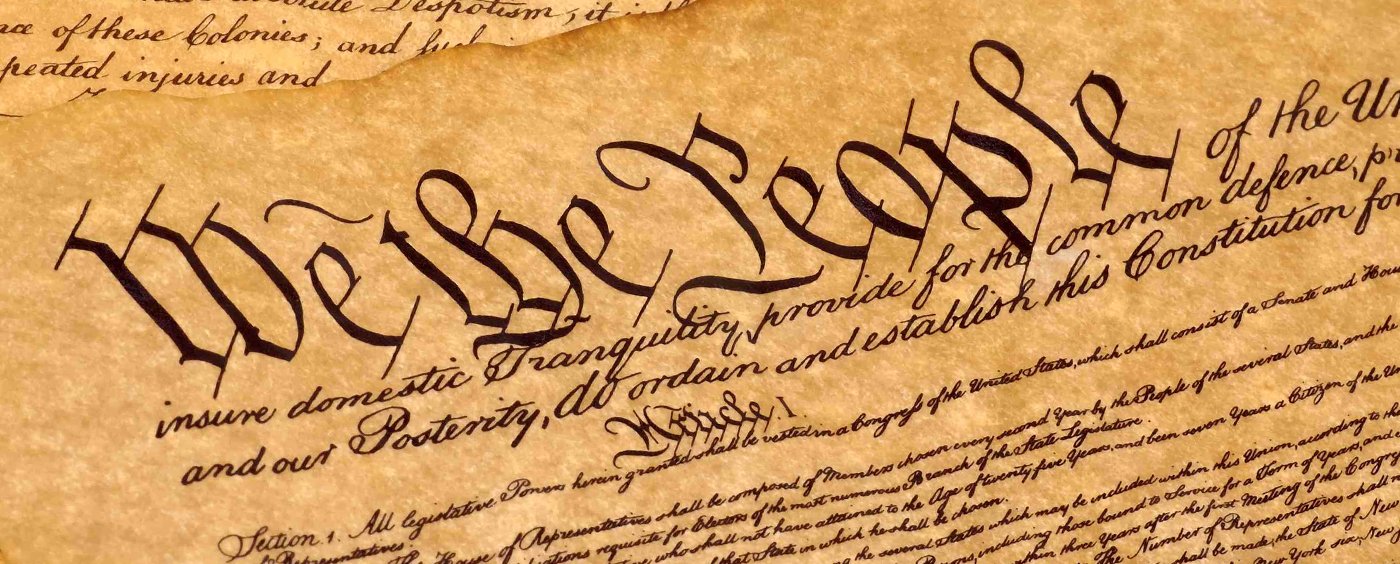 Despotism, it
of these Colonies; and such
peated injuries and
We the People of the Un
insure domestic Tranquility, provide for the common defence, pr
and our Posterity, do ordain and establish this Constitution for
Article I.
Section 1. All legislative Powers herein granted shall be vested in a Congress of the United States, which shall consist of a Senate and Hous
Representatives.
House of Representatives shall be composed of Members chosen every second Year by the People of the several States, and the
requisite for Electors of the most numerous Branch of the State Legislature.
who shall not have attained to the Age of twenty five Years, and been seven Years a Citizen of the Un
of that State in which he shall be chosen.
the several States which may be included within this Union, according to the
including those bound to Service for a Term of Years, and
within three Years after the first Meeting of the Congr
The Number of Representatives shall n
shall be made, the State of New
New York six, New